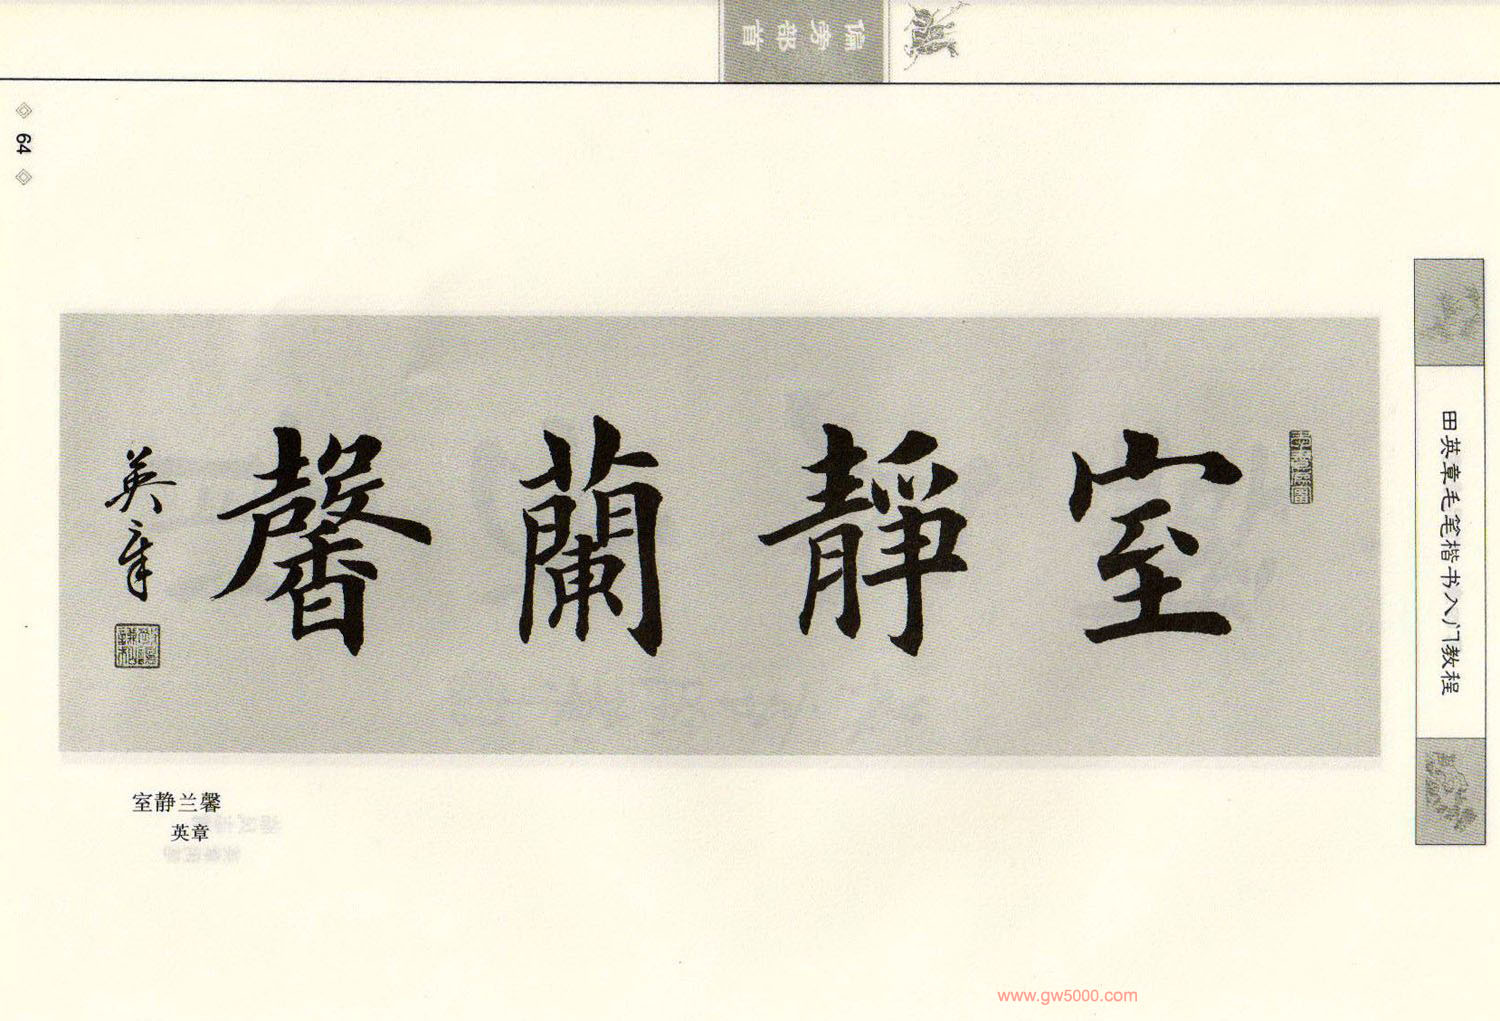 偏旁部首
64
室靜蘭馨
英章
田英章毛笔楷书入门教程
室静兰馨
英章
www.gw5000.com